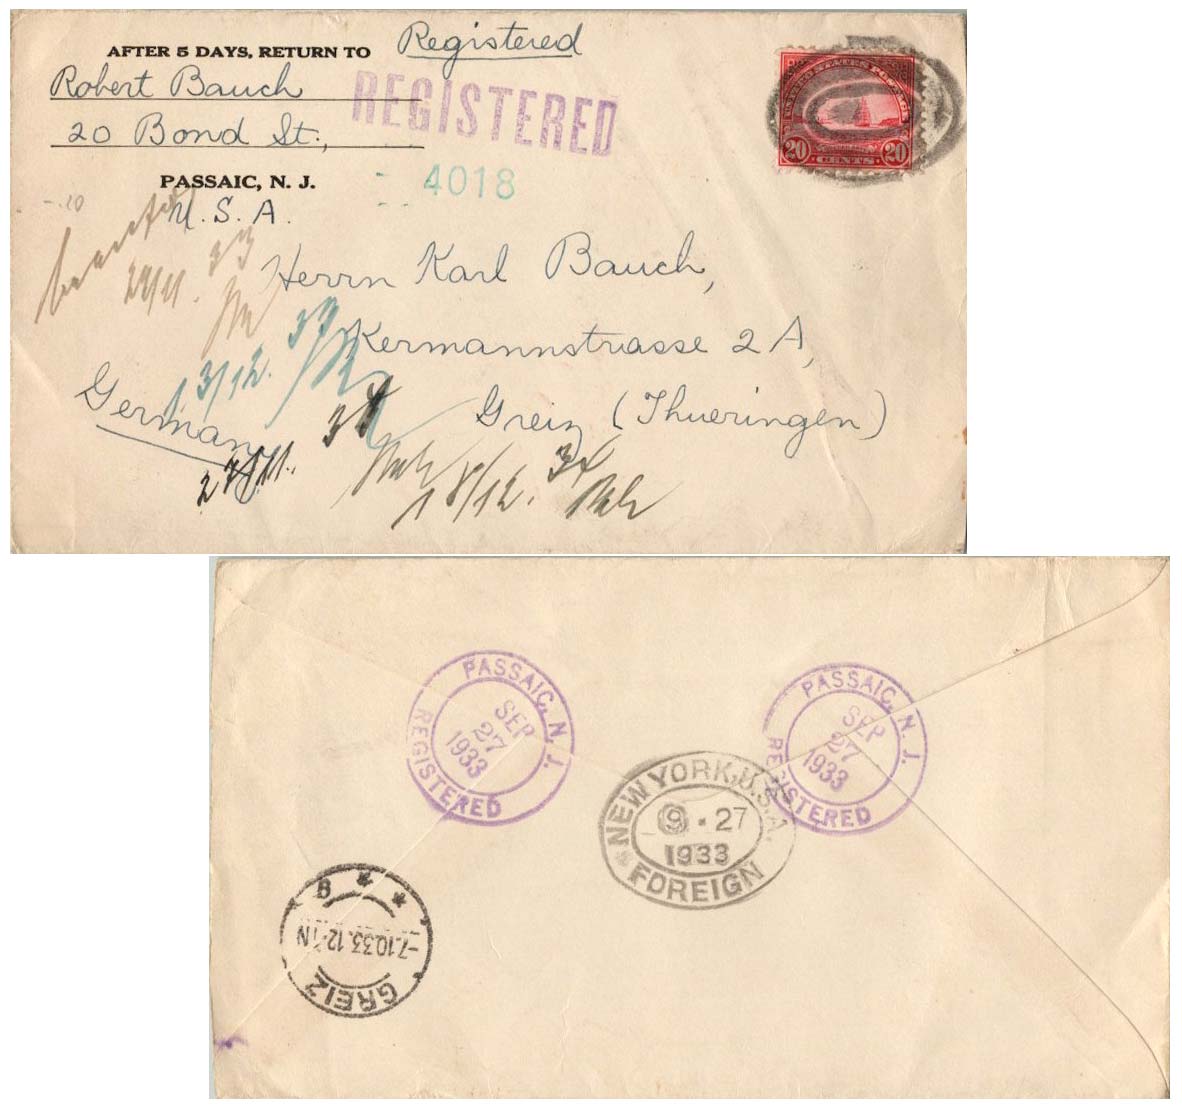 AFTER 5 DAYS, RETURN TO
Robert Bauch
20 Bond St.,
PASSAIC, N. J.
U. S. A.
Registered
REGISTERED
4018
UNITED STATES POSTAGE
20 CENTS 20
-.20
Herrn Karl Bauch,
Kermannstrasse 2 A,
Greiz (Thueringen)
Germany
24/11. 33
13/12. 33
27/11. 34
18/12. 34
PASSAIC, N. J.
SEP
27
1933
REGISTERED
PASSAIC, N. J.
SEP
27
1933
REGISTERED
NEW YORK, U.S.A.
9 • 27
1933
FOREIGN
GREIZ
-7.10.33.12-